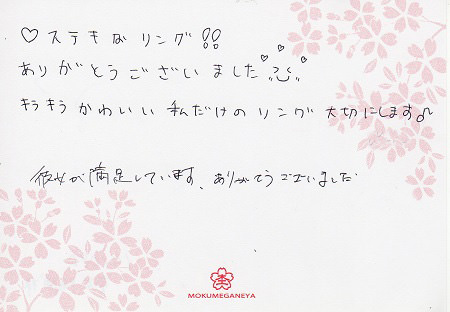 ♡ステキなリング!!
ありがとうございました
キラキラかわいい私だけのリング大切にします♪
彼女が満足しています、ありがとうございました
MOKUMEGANEYA